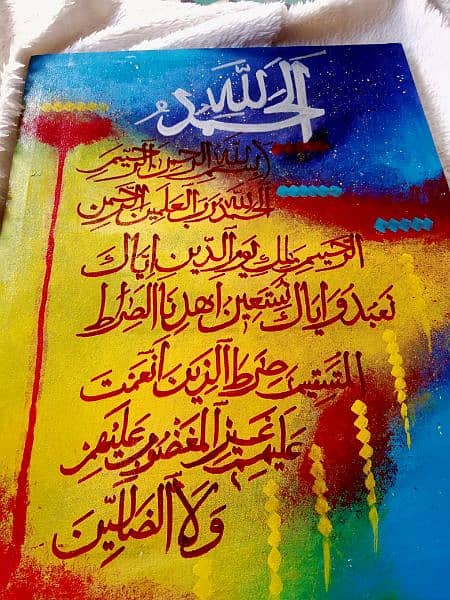 الحمد لله
بسم الله الرحمن الرحيم
الحمد لله رب العلمين الرحمن
الرحيم ملك يوم الدين اياك
نعبد و اياك نستعين اهدنا الصراط
المستقيم صرط الذين أنعمت
عليهم غير المغضوب عليهم
ولا الضالين